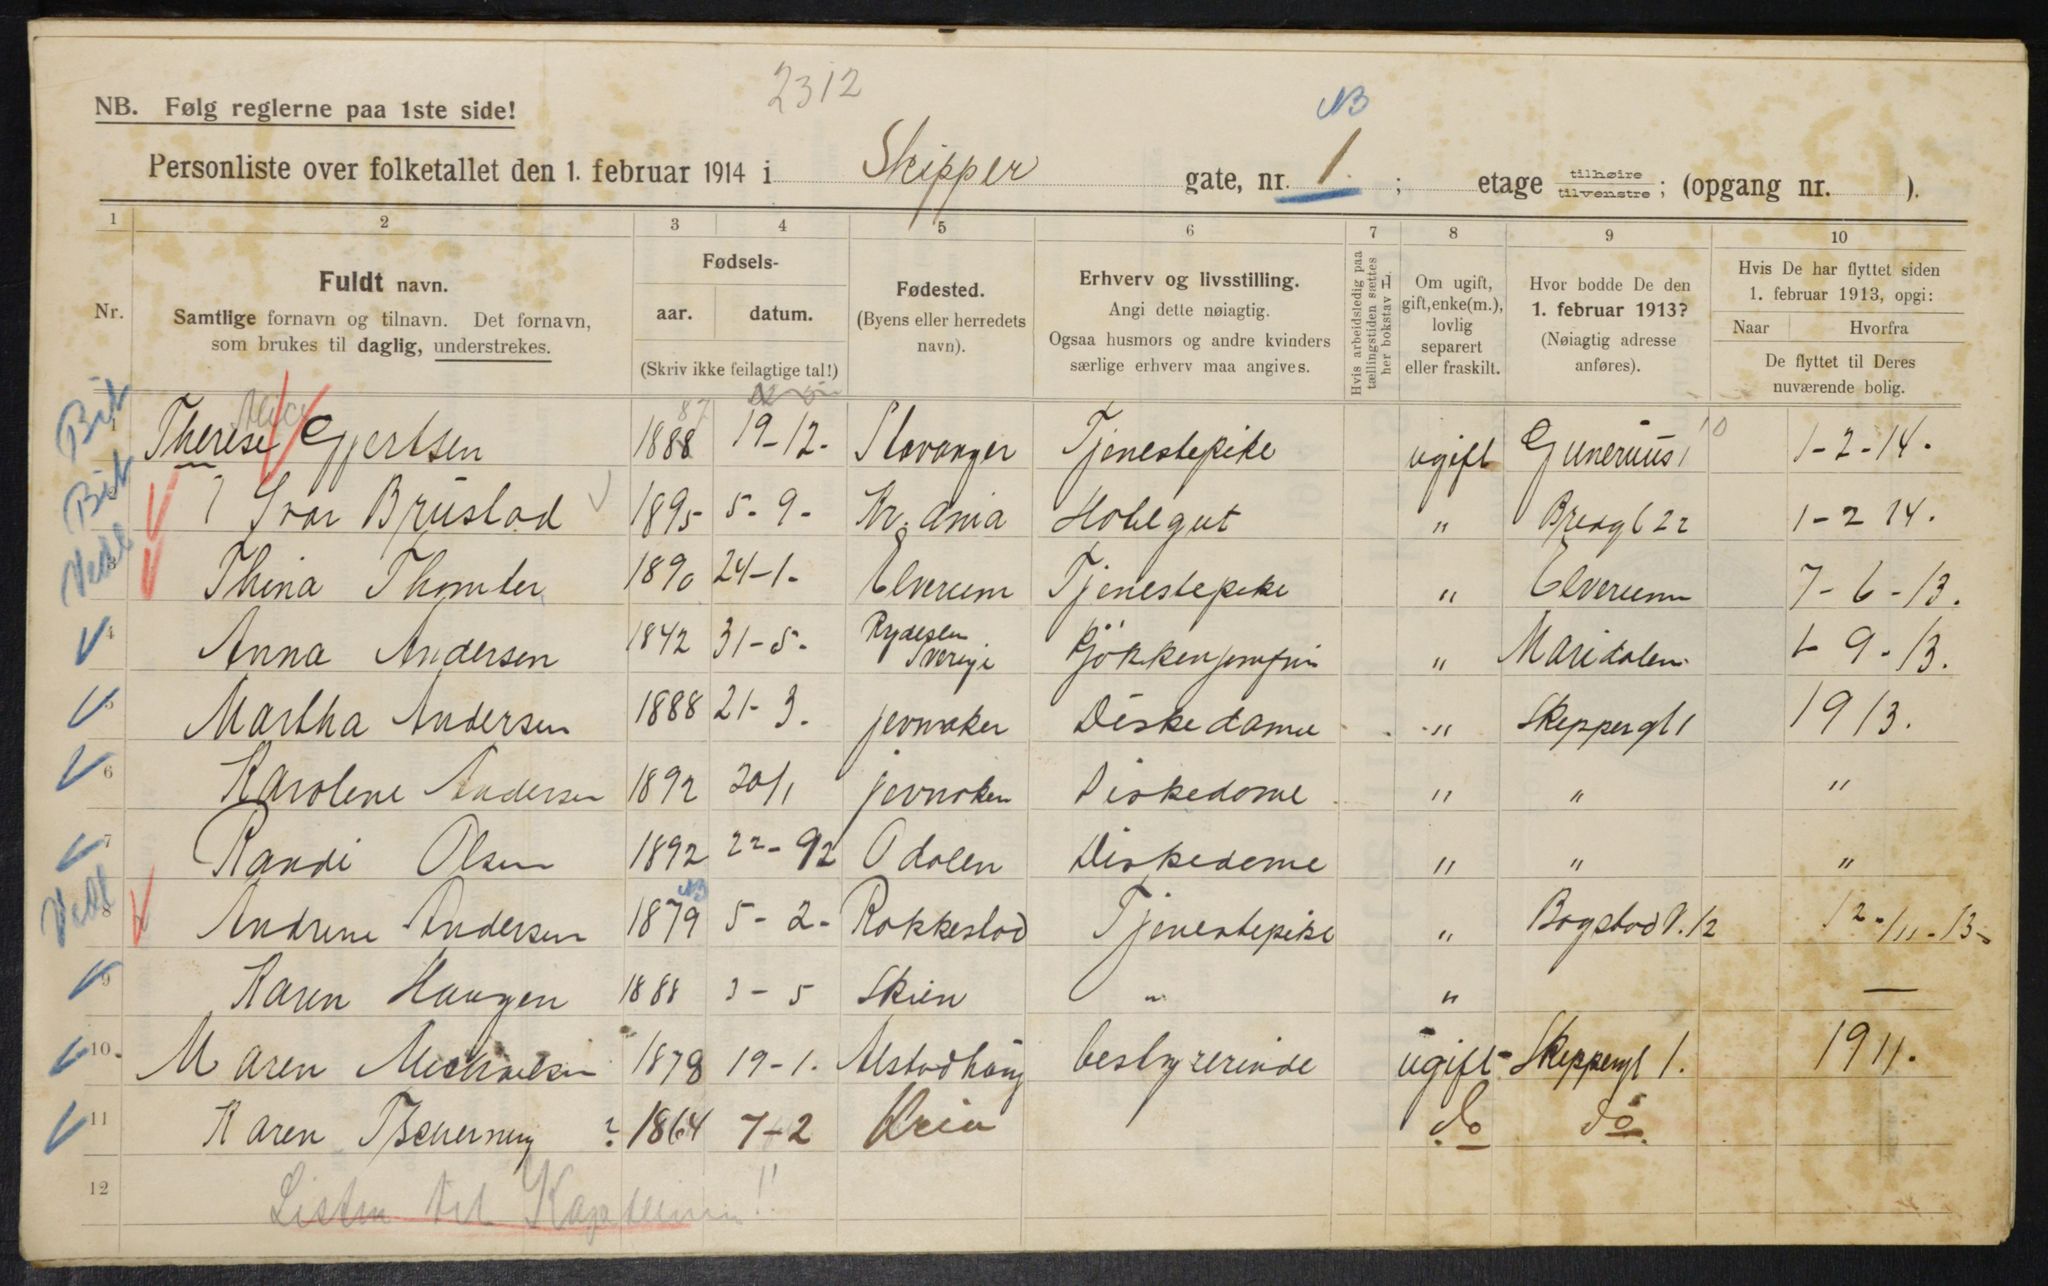 2312
NB
NB. Følg reglerne paa 1ste side!
Personliste over folketallet den 1. februar 1914 i Skipper gate, nr. 1. ; etage tilhøire tilvenstre ; (opgang nr. ).
1 2 3 4 5 6 7 8 9 10
Nr.
Fuldt navn.
Samtlige fornavn og tilnavn. Det fornavn,
som brukes til daglig, understrekes.
Fødsels-
aar. datum.
(Skriv ikke feilagtige tal!)
Fødested.
(Byens eller herredets
navn).
Erhverv og livsstilling.
Angi dette nøiagtig.
Ogsaa husmors og andre kvinders
særlige erhverv maa angives.
Hvis arbeidsledig paa
tællingstiden sættes
her bokstav L
Om ugift,
gift, enke(m.),
lovlig
separert
eller fraskilt.
Hvor bodde De den
1. februar 1913?
(Nøiagtig adresse
anføres).
Hvis De har flyttet siden
1. februar 1913, opgi:
Naar Hvorfra
De flyttet til Deres
nuværende bolig.
Alice 87
Therese Gjertsen 1888 19-12- Stavanger Tjenestepike ugift Gunerius 1 10 1-2-14.
Ivar Brustad 1895 5-9- Kr.ania Hotelgut " Bredgt 22 1-2 14.
3 Thina Thomter 1890 24-1- Elverum Tjenestepike " Elverum 7-6-13.
4 Anna Andersen 1842 31-5- Sverige " Maridalen 1-9-13.
5 Martha Andersen 1888 21-3. jevnaker Diskedame " Skippergt 1 1913.
6 Karolene Andersen 1892 20/1 jevnaken Diskedame " " "
7 Randi Olsen 1892 22-92 Odalen Diskedame " " "
8 Andrine Andersen 1879 NB 5-2- Rakkestad Tjenestepike " Bogstad v. 12 12-/11-13-
9 Karen Haugen 1888 3-5 Skien " " —
10. Maren Michaelsen 1878 19-1. Alstadhaug bestyrerinde ugift- Skippergt 1. 1911.
11 Karen Tscherning ? 1864 7-2 Kria do do
12 Listen til Kaptleinin!!